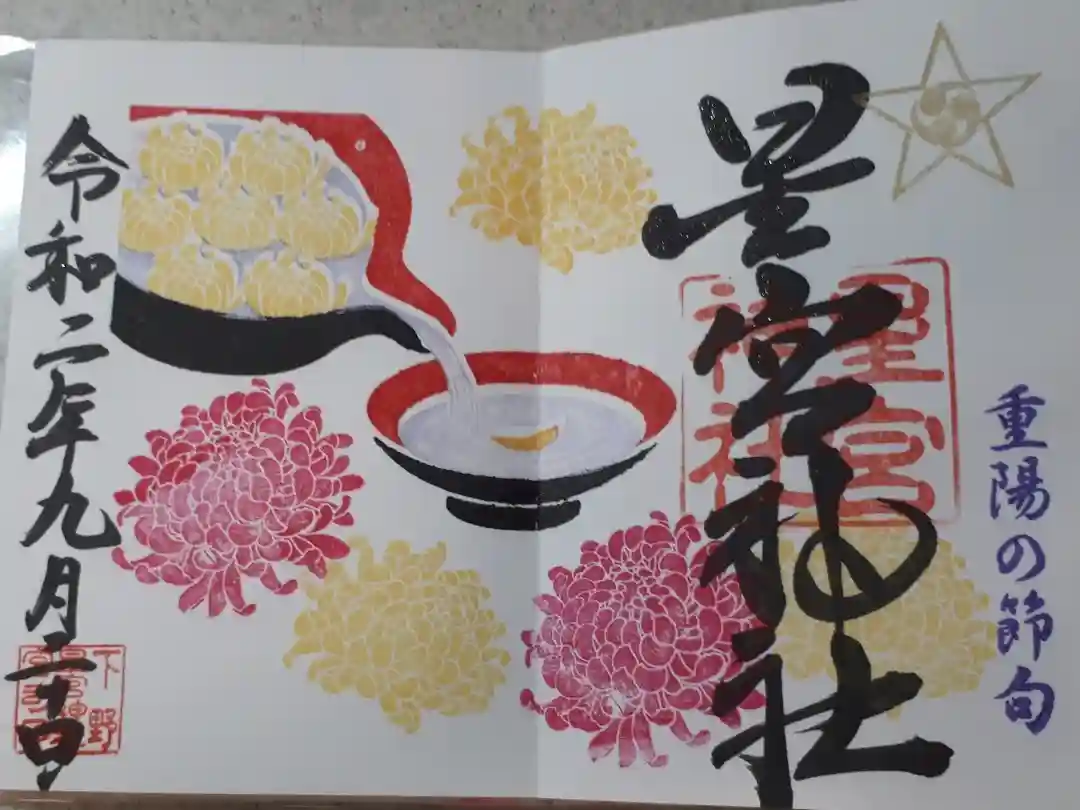 重陽の節句
星宮神社
星宮
神社
令和二年九月二十日
下野